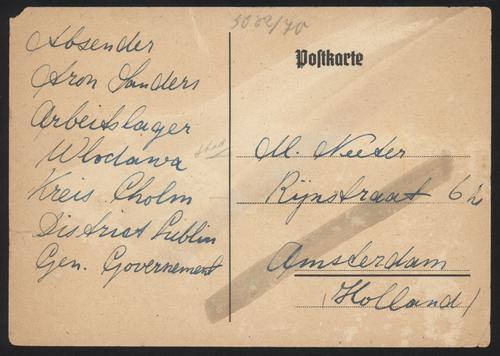 5082/40
Absender
Aron Sanders
Arbeitslager
Wlodawa
Kreis Cholm
District Lublin
Gen. Governement
Postkarte
M. Neeter
Rijnstraat 6
Amsterdam
(Holland)